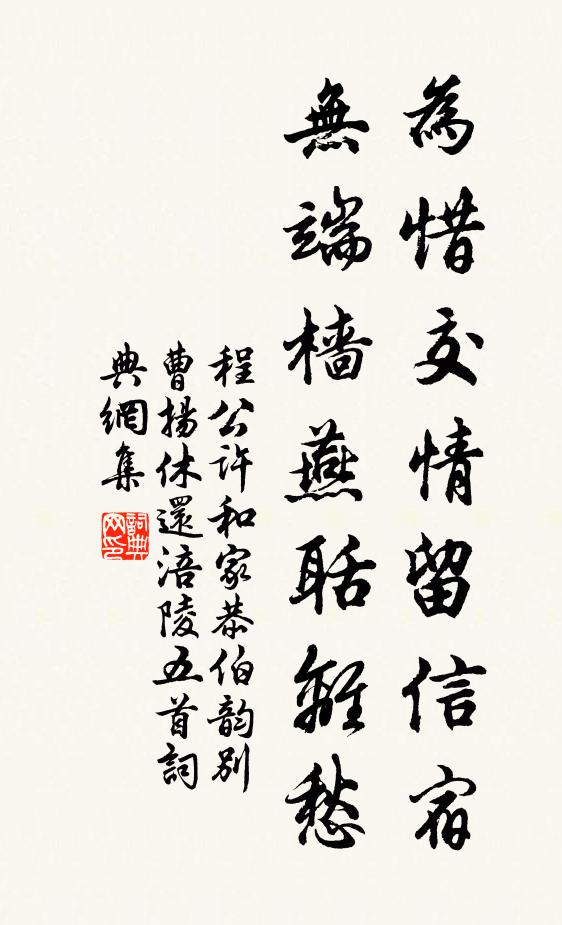 為惜交情留信宿
無端檣燕聒離愁
程公許和家恭伯韵別
曹揚休還涪陵五首詞
典網集
詞典网印